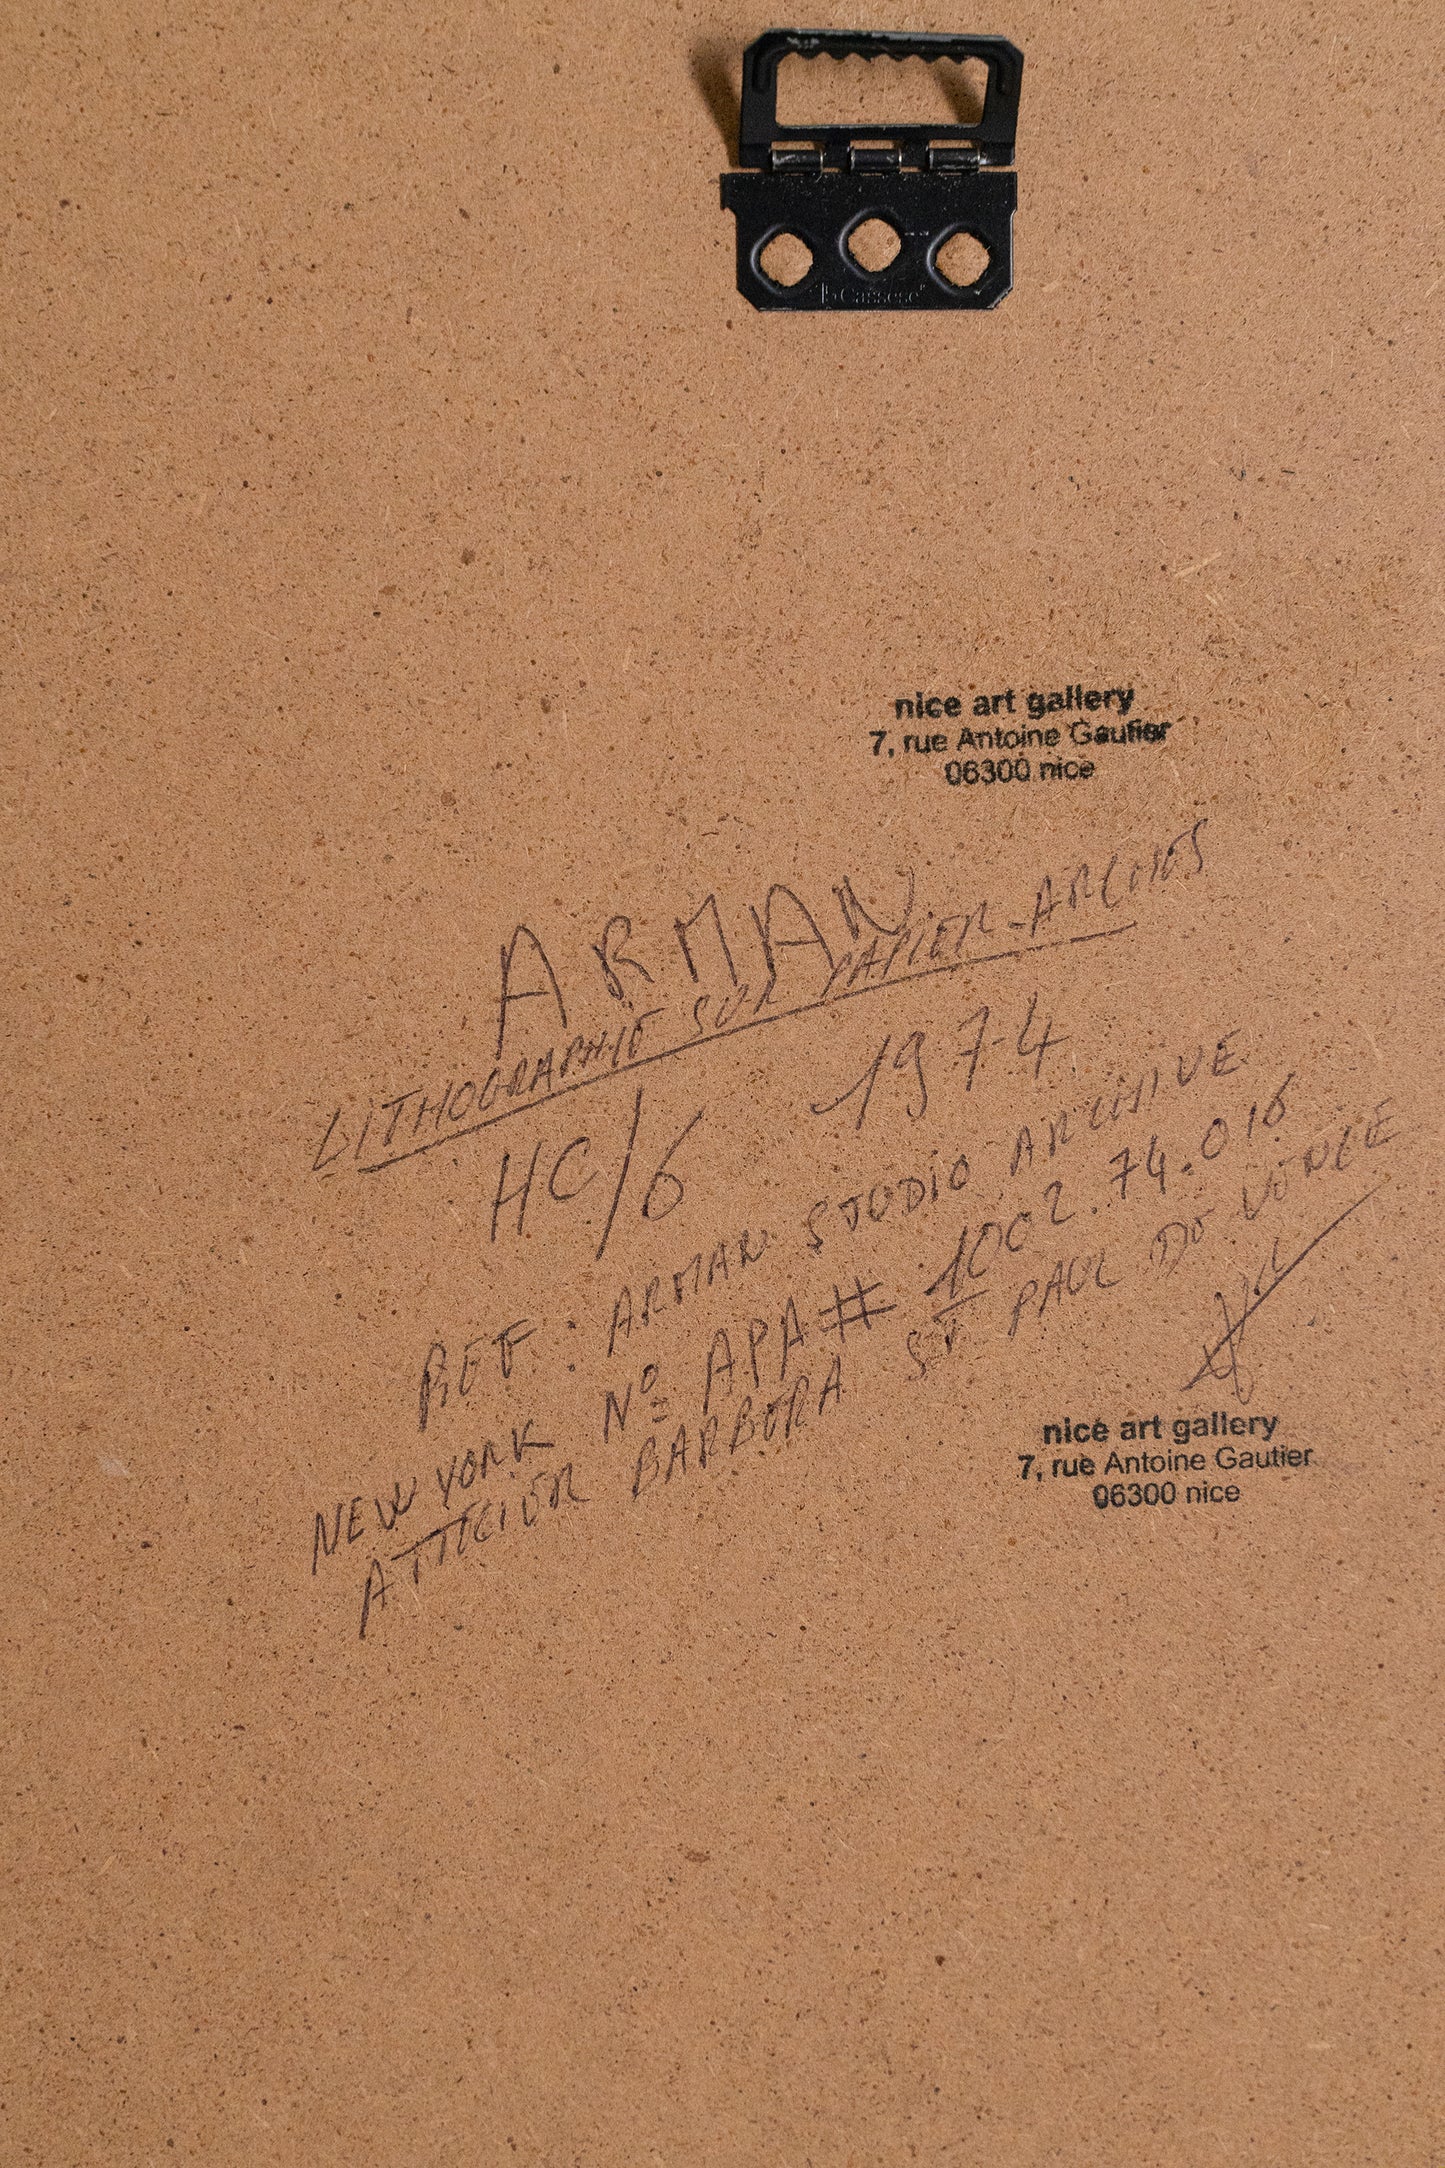 Cassese
nice art gallery
7, rue Antoine Gautier
06300 nice
ARMAN
LITHOGRAPHIE SUR PAPIER-ARCHES
HC/6 1974
REF : ARMAN STUDIO ARCHIVE
NEW YORK Nº APA# 1002.74.016
ATTELIER BARBERA ST PAUL DE VENCE
nice art gallery
7, rue Antoine Gautier
06300 nice